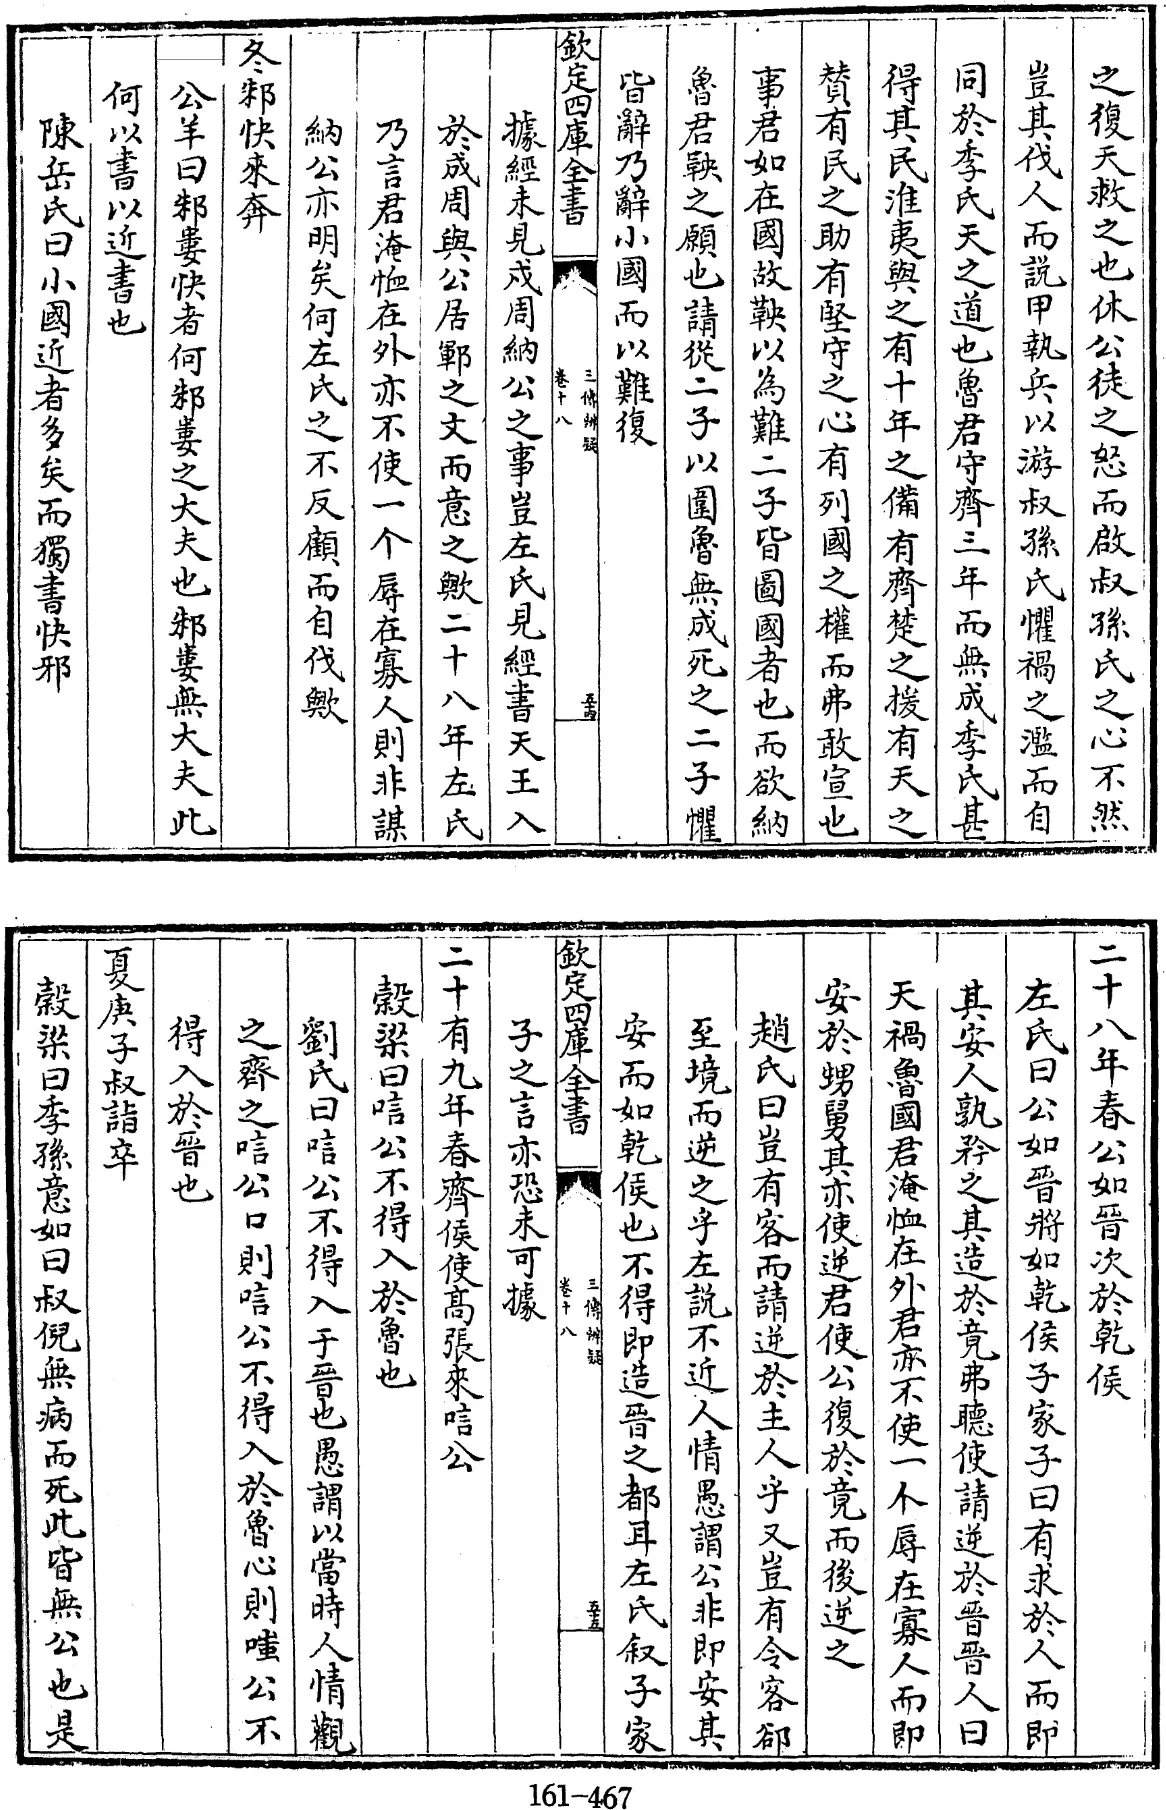 之復天救之也休公徒之怒而啟叔孫氏之心不然
豈其伐人而説甲執兵以游叔孫氏懼禍之濫而自
同於季氏天之道也魯君守齊三年而無成季氏甚
得其民淮夷與之有十年之備有齊楚之援有天之
賛有民之助有堅守之心有列國之權而弗敢宣也
事君如在國故鞅以為難二子皆圖國者也而欲納
魯君鞅之願也請從二子以圍魯無成死之二子懼
皆辭乃辭小國而以難復
欽定四庫全書
三傳辨疑
卷十八
五十四
據經未見成周納公之事豈左氏見經書天王入
於成周與公居鄆之文而意之歟二十八年左氏
乃言君淹恤在外亦不使一个辱在寡人則非謀
納公亦明矣何左氏之不反顧而自伐歟
冬邾快來奔
公羊曰邾婁快者何邾婁之大夫也邾婁無大夫此
何以書以近書也
陳岳氏曰小國近者多矣而獨書快邪
二十八年春公如晉次於乾侯
左氏曰公如晉將如乾侯子家子曰有求於人而即
其安人孰矜之其造於竟弗聽使請逆於晉晉人曰
天禍魯國君淹恤在外君亦不使一个辱在寡人而即
安於甥舅其亦使逆君使公復於竟而後逆之
趙氏曰豈有客而請逆於主人乎又豈有令客郤
至境而逆之乎左説不近人情愚謂公非即安其
安而如乾侯也不得即造晉之都耳左氏叙子家
欽定四庫全書
三傳辨疑
卷十八
五十五
子之言亦恐未可據
二十有九年春齊侯使高張來唁公
穀梁曰唁公不得入於魯也
劉氏曰唁公不得入于晉也愚謂以當時人情觀
之齊之唁公口則唁公不得入於魯心則嗤公不
得入於晉也
夏庚子叔詣卒
穀梁曰季孫意如曰叔倪無病而死此皆無公也是
161-467